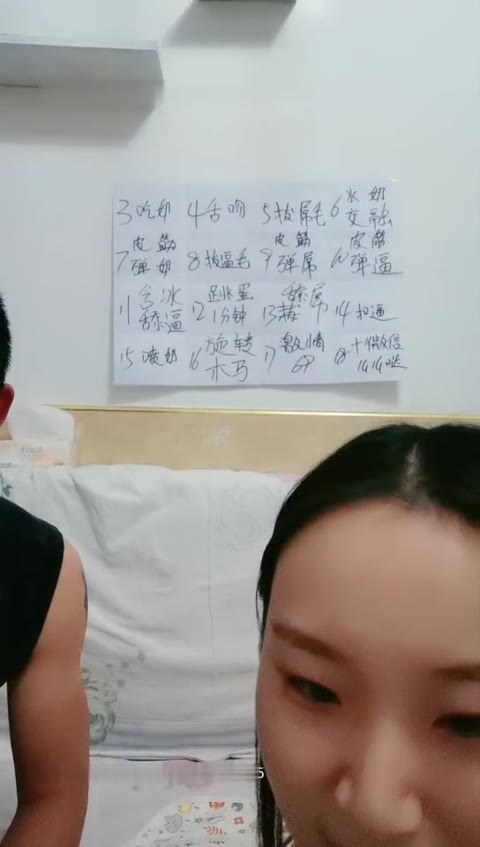 3吃奶 4舌吻 5拔屌毛 6水奶交融
7皮筋弹奶 8拔逼毛 9皮筋弹屌 10皮筋弹逼
11含冰舔逼 12跳蛋1分钟 13舔屌 14扣逼
15喷奶 16旋转木马 17激情
Face
5